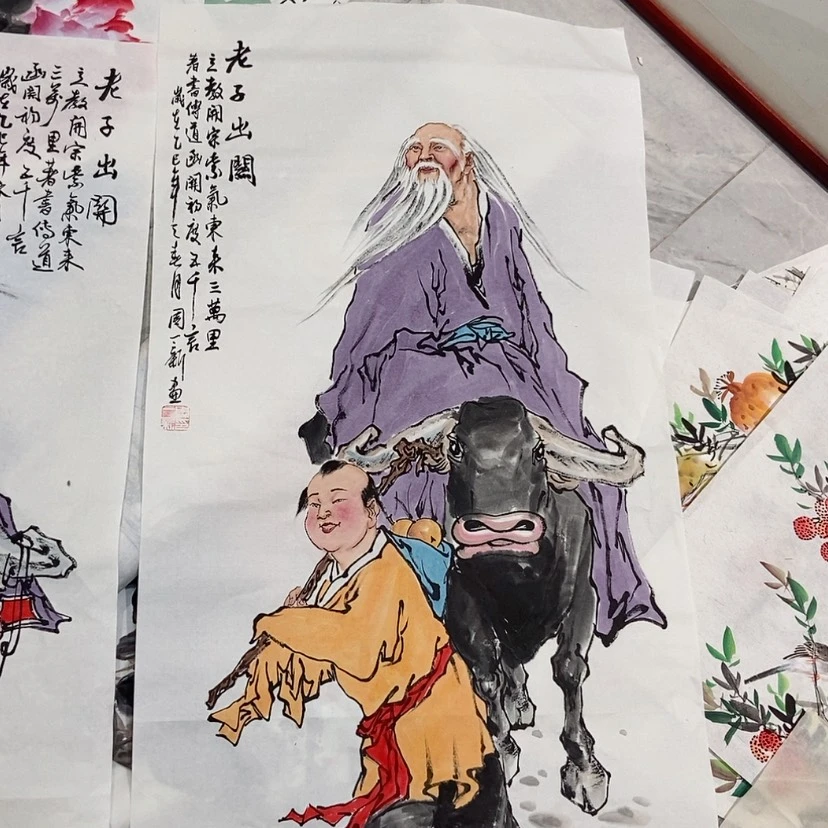 老子出關
立教開宗紫氣東来三萬里
著書傳道函關初度五千言
歲在乙巳年之春月周一新畫
老子出關
立教開宗紫氣東来
三萬里著書傳道
函關初度五千言
歲在乙巳年